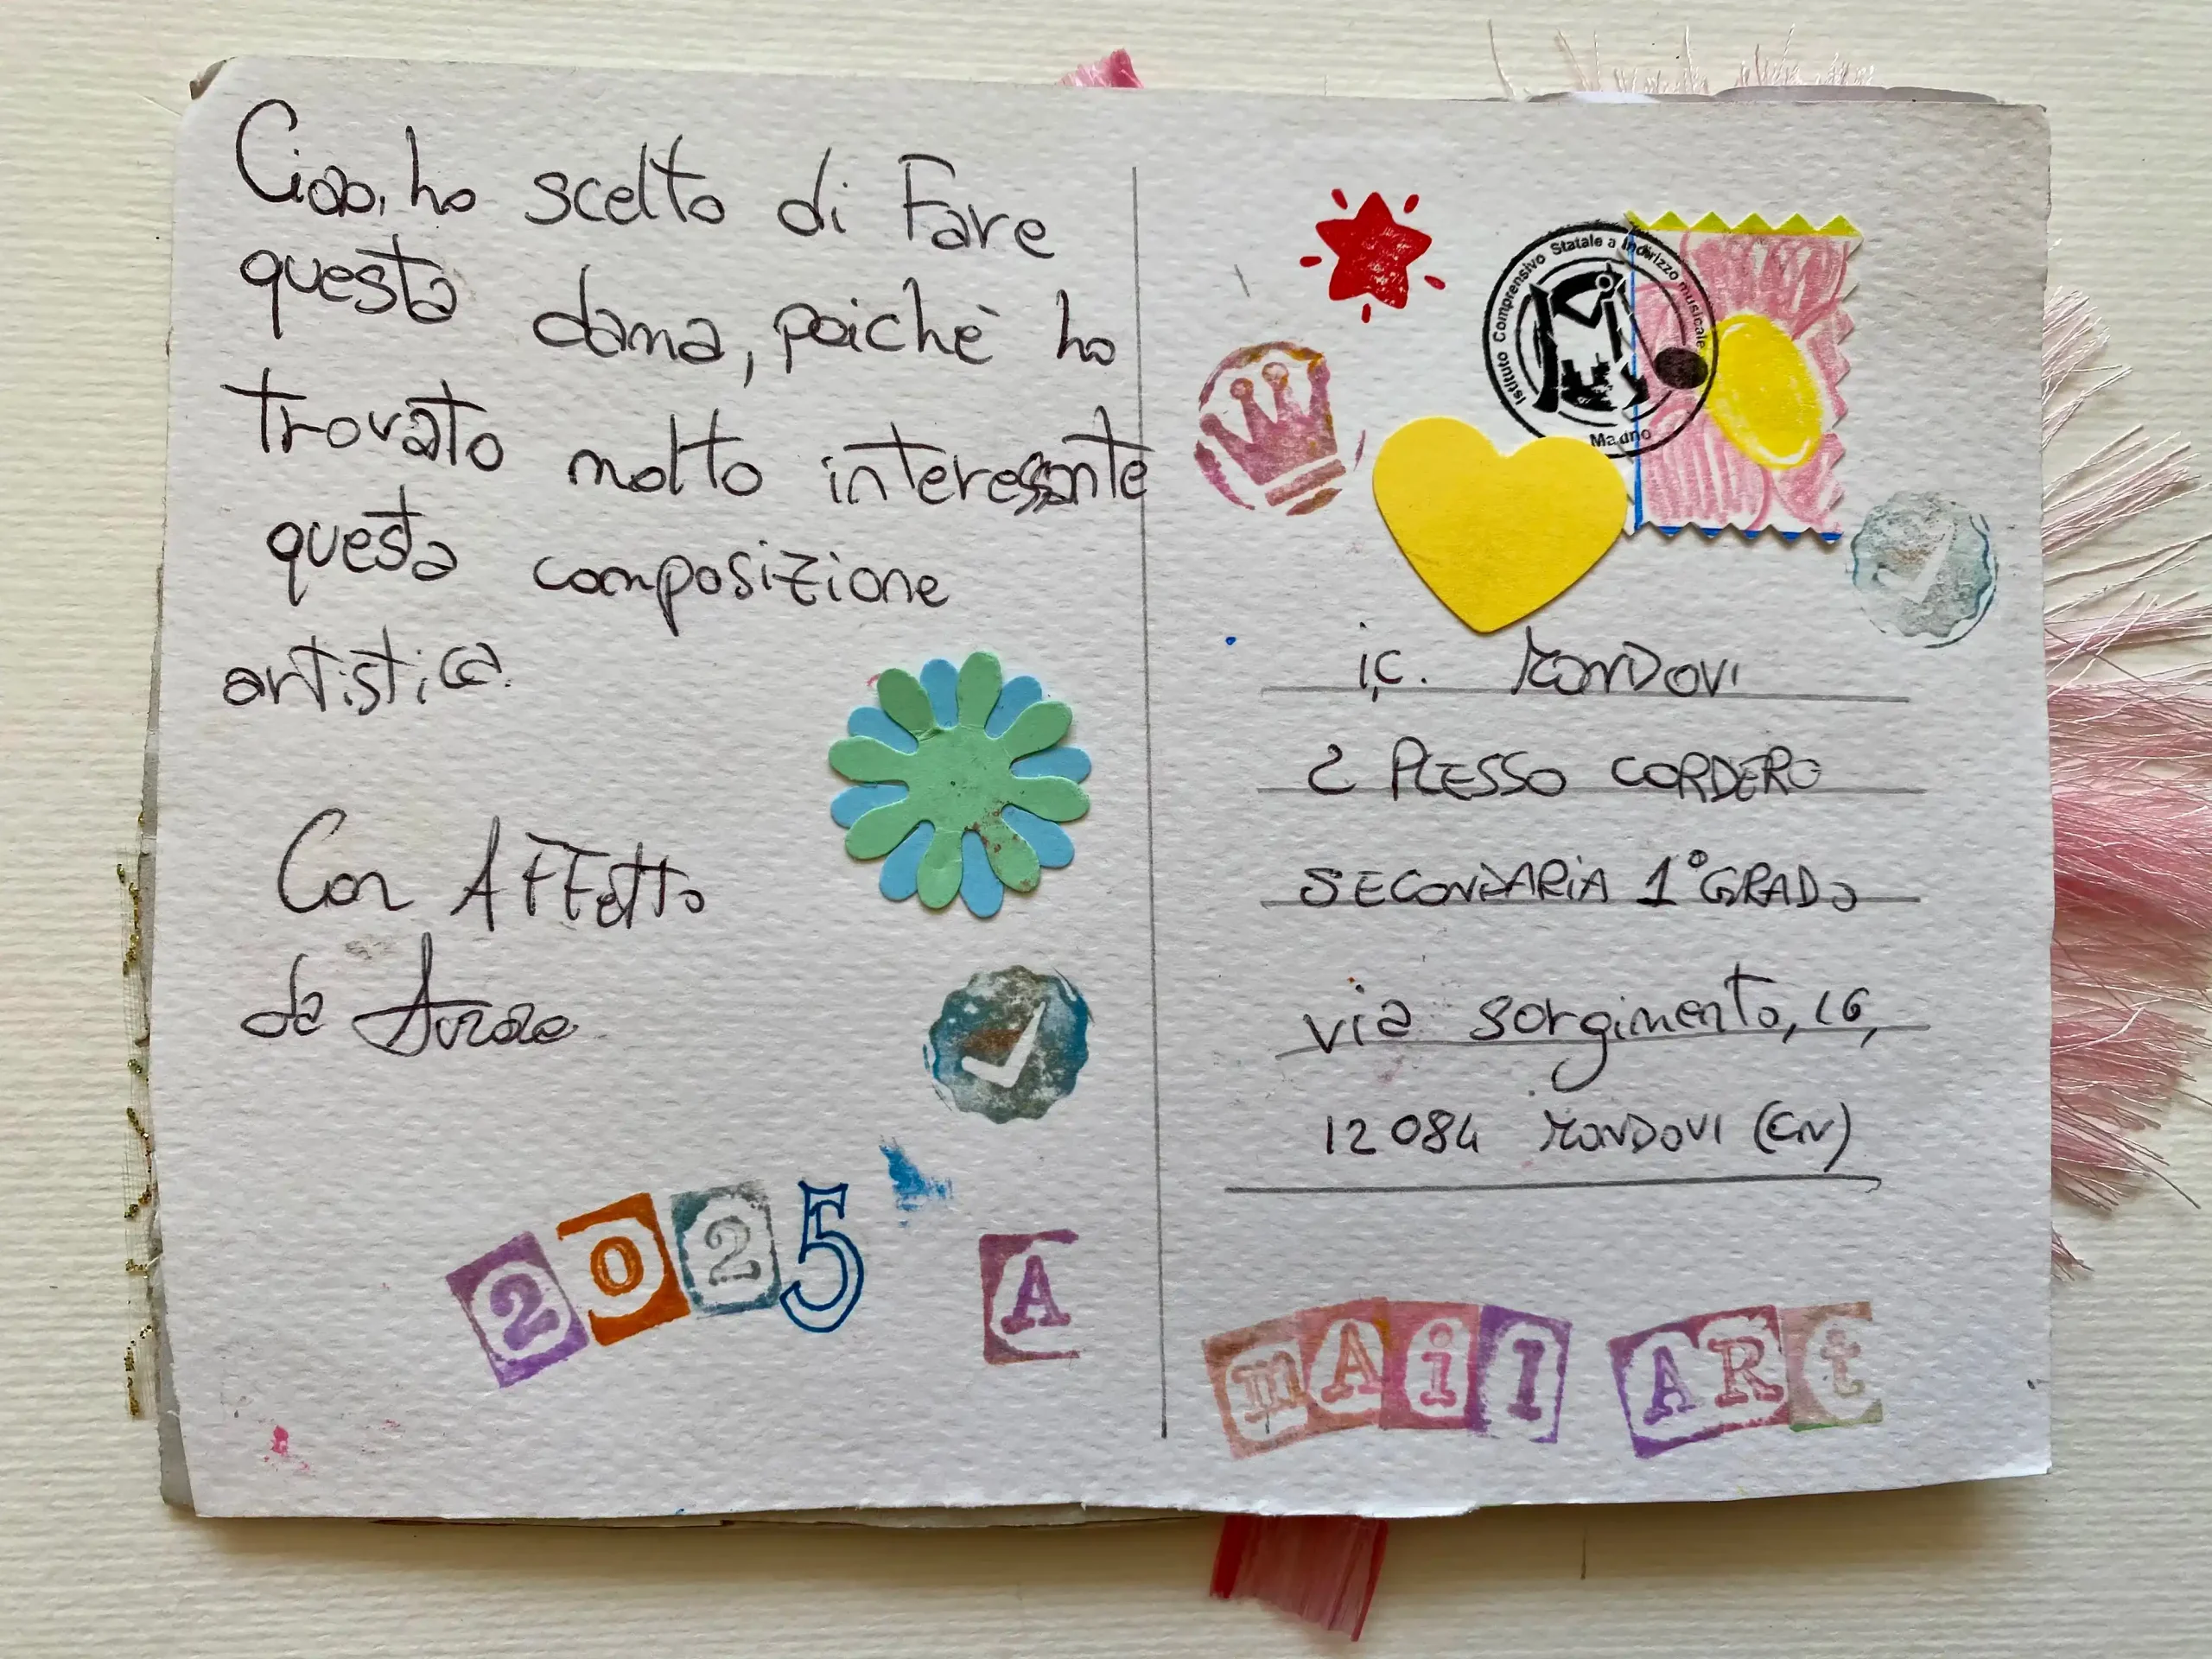 Ciao, ho scelto di Fare
questa dama, poichè ho
trovato molto interessante
questa composizione
artistica.
Con AFFetto
da
2025
A
Istituto Comprensivo Statale a Indirizzo musicale
i.C. MONDOVI
2 PLESSO CORDERO
SECONDARIA 1° GRADO
via sorgimento, 16,
12084 MONDOVI (CN)
mAil ARt